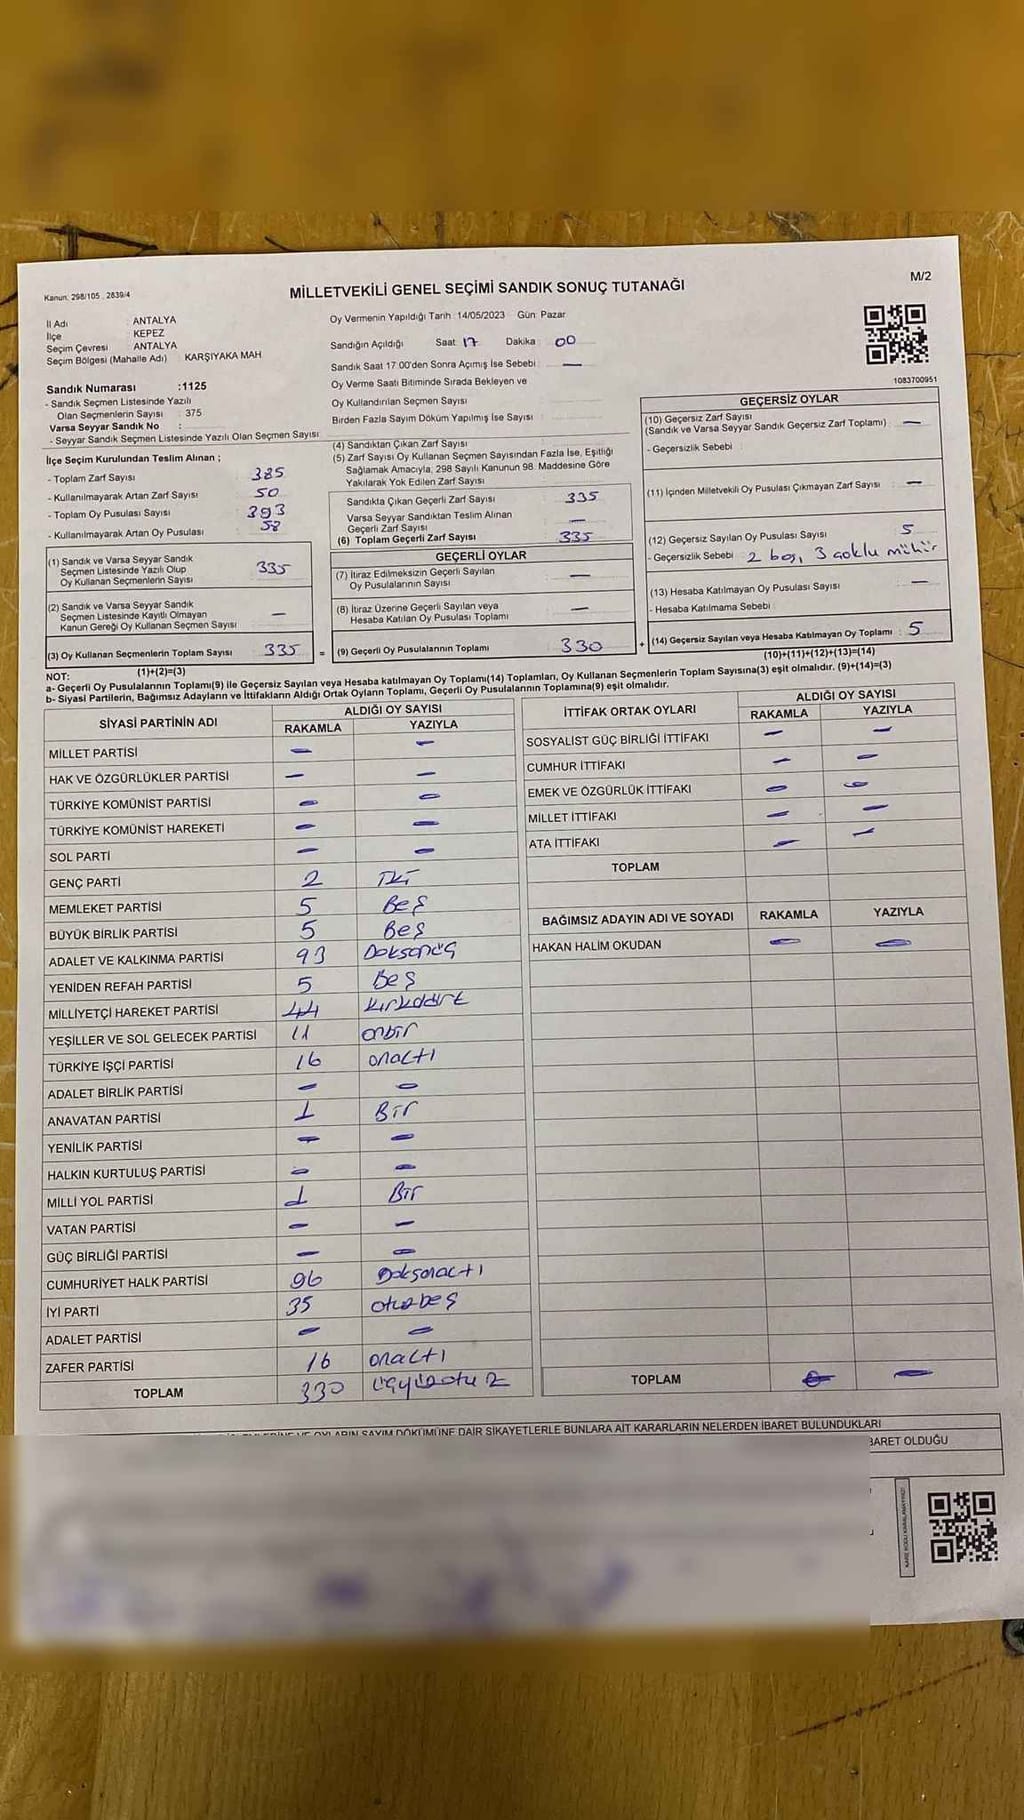 Kanun: 298/105 , 2839/4
MİLLETVEKİLİ GENEL SEÇİMİ SANDIK SONUÇ TUTANAĞI
M/2
İl Adı : ANTALYA
İlçe : KEPEZ
Seçim Çevresi : ANTALYA
Seçim Bölgesi (Mahalle Adı) : KARŞIYAKA MAH
Oy Vermenin Yapıldığı Tarih :14/05/2023 Gün: Pazar
Sandığın Açıldığı Saat 17 Dakika : 00
Sandık Saat 17:00'den Sonra Açılmış İse Sebebi : —
Oy Verme Saati Bitiminde Sırada Bekleyen ve
Oy Kullandırılan Seçmen Sayısı
Birden Fazla Sayım Döküm Yapılmış İse Sayısı
1083700951
Sandık Numarası :1125
- Sandık Seçmen Listesinde Yazılı
Olan Seçmenlerin Sayısı : 375
Varsa Seyyar Sandık No :
- Seyyar Sandık Seçmen Listesinde Yazılı Olan Seçmen Sayısı
İlçe Seçim Kurulundan Teslim Alınan ;
- Toplam Zarf Sayısı 385
- Kullanılmayarak Artan Zarf Sayısı 50
- Toplam Oy Pusulası Sayısı 393
- Kullanılmayarak Artan Oy Pusulası 58
(1) Sandık ve Varsa Seyyar Sandık
Seçmen Listesinde Yazılı Olup
Oy Kullanan Seçmenlerin Sayısı 335
(2) Sandık ve Varsa Seyyar Sandık
Seçmen Listesinde Kayıtlı Olmayan
Kanun Gereği Oy Kullanan Seçmen Sayısı : —
(3) Oy Kullanan Seçmenlerin Toplam Sayısı 335 =
(4) Sandıktan Çıkan Zarf Sayısı
(5) Zarf Sayısı Oy Kullanan Seçmen Sayısından Fazla İse, Eşitliği
Sağlamak Amacıyla, 298 Sayılı Kanunun 98. Maddesine Göre
Yakılarak Yok Edilen Zarf Sayısı
Sandıkta Çıkan Geçerli Zarf Sayısı 335
Varsa Seyyar Sandıktan Teslim Alınan
Geçerli Zarf Sayısı —
(6) Toplam Geçerli Zarf Sayısı 335
GEÇERLİ OYLAR
(7) İtiraz Edilmeksizin Geçerli Sayılan
Oy Pusulalarının Sayısı —
(8) İtiraz Üzerine Geçerli Sayılan veya
Hesaba Katılan Oy Pusulası Toplamı —
(9) Geçerli Oy Pusulalarının Toplamı 330 +
GEÇERSİZ OYLAR
(10) Geçersiz Zarf Sayısı
(Sandık ve Varsa Seyyar Sandık Geçersiz Zarf Toplamı) : —
- Geçersizlik Sebebi :
(11) İçinden Milletvekili Oy Pusulası Çıkmayan Zarf Sayısı : —
(12) Geçersiz Sayılan Oy Pusulası Sayısı 5
- Geçersizlik Sebebi : 2 boş, 3 çoklu mühür
(13) Hesaba Katılmayan Oy Pusulası Sayısı —
- Hesaba Katılmama Sebebi :
(14) Geçersiz Sayılan veya Hesaba Katılmayan Oy Toplamı : 5
NOT: (1)+(2)=(3) (10)+(11)+(12)+(13)=(14)
a- Geçerli Oy Pusulalarının Toplamı(9) ile Geçersiz Sayılan veya Hesaba katılmayan Oy Toplamı(14) Toplamları, Oy Kullanan Seçmenlerin Toplam Sayısına(3) eşit olmalıdır. (9)+(14)=(3)
b- Siyasi Partilerin, Bağımsız Adayların ve İttifakların Aldığı Ortak Oyların Toplamı, Geçerli Oy Pusulalarının Toplamına(9) eşit olmalıdır.
SİYASİ PARTİNİN ADI ALDIĞI OY SAYISI
RAKAMLA YAZIYLA
MİLLET PARTİSİ — —
HAK VE ÖZGÜRLÜKLER PARTİSİ — —
TÜRKİYE KOMÜNİST PARTİSİ — —
TÜRKİYE KOMÜNİST HAREKETİ — —
SOL PARTİ — —
GENÇ PARTİ 2 İki
MEMLEKET PARTİSİ 5 Beş
BÜYÜK BİRLİK PARTİSİ 5 Beş
ADALET VE KALKINMA PARTİSİ 93 Doksanüç
YENİDEN REFAH PARTİSİ 5 Beş
MİLLİYETÇİ HAREKET PARTİSİ 44 Kırkdört
YEŞİLLER VE SOL GELECEK PARTİSİ 11 onbir
TÜRKİYE İŞÇİ PARTİSİ 16 onaltı
ADALET BİRLİK PARTİSİ — —
ANAVATAN PARTİSİ 1 Bir
YENİLİK PARTİSİ — —
HALKIN KURTULUŞ PARTİSİ — —
MİLLİ YOL PARTİSİ 1 Bir
VATAN PARTİSİ — —
GÜÇ BİRLİĞİ PARTİSİ — —
CUMHURİYET HALK PARTİSİ 96 Doksanaltı
İYİ PARTİ 35 otuzbeş
ADALET PARTİSİ — —
ZAFER PARTİSİ 16 onaltı
TOPLAM 330 üçyüzotuz
İTTİFAK ORTAK OYLARI ALDIĞI OY SAYISI
RAKAMLA YAZIYLA
SOSYALİST GÜÇ BİRLİĞİ İTTİFAKI — —
CUMHUR İTTİFAKI — —
EMEK VE ÖZGÜRLÜK İTTİFAKI — —
MİLLET İTTİFAKI — —
ATA İTTİFAKI — —
TOPLAM
BAĞIMSIZ ADAYIN ADI VE SOYADI RAKAMLA YAZIYLA
HAKAN HALİM OKUDAN — —
TOPLAM — —
OYLARIN SAYIM DÖKÜMÜNE DAİR ŞİKAYETLERLE BUNLARA AİT KARARLARIN NELERDEN İBARET BULUNDUKLARI
İBARET OLDUĞU
KARE KODU KARALAMAYINIZ!